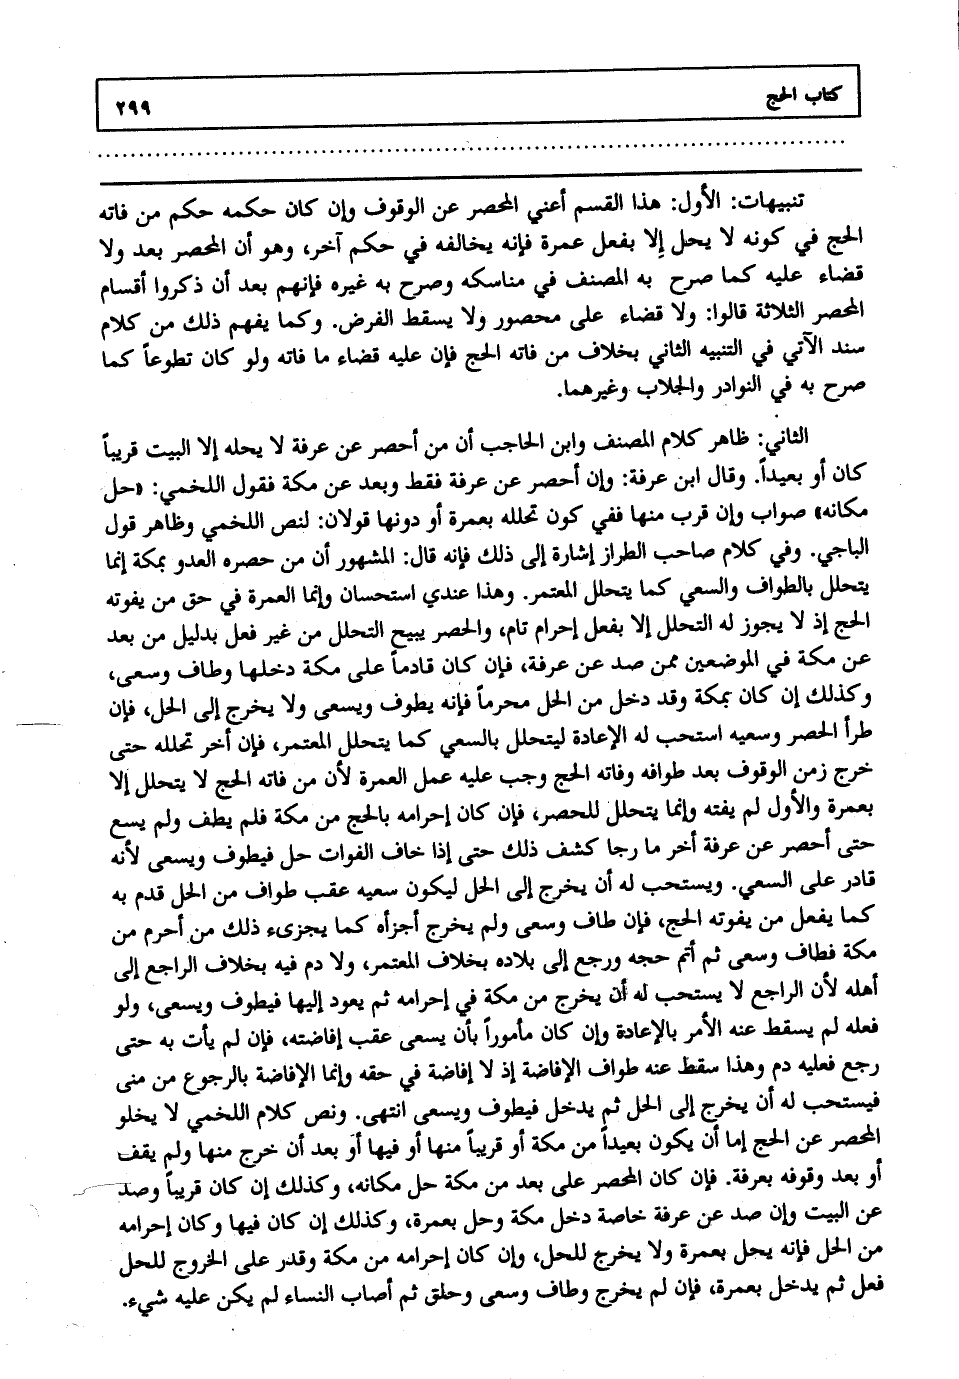 كتاب الحج
٢٩٩
تنبيهات: الأول: هذا القسم أعني المحصر عن الوقوف وإن كان حكمه حكم من فاته
الحج في كونه لا يحل إلا بفعل عمرة فإنه يخالفه في حكم آخر، وهو أن المحصر بعد ولا
قضاء عليه كما صرح به المصنف في مناسكه وصرح به غيره فإنهم بعد أن ذكروا أقسام
المحصر الثلاثة قالوا: ولا قضاء على محصور ولا يسقط الفرض. وكما يفهم ذلك من كلام
سند الآتي في التنبيه الثاني بخلاف من فاته الحج فإن عليه قضاء ما فاته ولو كان تطوعاً كما
صرح به في النوادر والجلاب وغيرهما.
الثاني: ظاهر كلام المصنف وابن الحاجب أن من أحصر عن عرفة لا يحله إلا البيت قريباً
كان أو بعيداً. وقال ابن عرفة: وإن أحصر عن عرفة فقط وبعد عن مكة فقول اللخمي: «حل
مكانه» صواب وإن قرب منها ففي كون تحلله بعمرة أو دونها قولان: لنص اللخمي وظاهر قول
الباجي. وفي كلام صاحب الطراز إشارة إلى ذلك فإنه قال: المشهور أن من حصره العدو بمكة إنما
يتحلل بالطواف والسعي كما يتحلل المعتمر. وهذا عندي استحسان وإنما العمرة في حق من يفوته
الحج إذ لا يجوز له التحلل إلا بفعل إحرام تام، والحصر يبيح التحلل من غير فعل بدليل من بعد
عن مكة في الموضعين ممن صد عن عرفة، فإن كان قادماً على مكة دخلها وطاف وسعى،
وكذلك إن كان بمكة وقد دخل من الحل محرماً فإنه يطوف ويسعى ولا يخرج إلى الحل، فإن
طرأ الحصر وسعيه استحب له الإعادة ليتحلل بالسعي كما يتحلل المعتمر، فإن أخر تحلله حتى
خرج زمن الوقوف بعد طوافه وفاته الحج وجب عليه عمل العمرة لأن من فاته الحج لا يتحلل إلا
بعمرة والأول لم يفته وإنما يتحلل للحصر، فإن كان إحرامه بالحج من مكة فلم يطف ولم يسع
حتى أحصر عن عرفة أخر ما رجا كشف ذلك حتى إذا خاف الفوات حل فيطوف ويسعى لأنه
قادر على السعي. ويستحب له أن يخرج إلى الحل ليكون سعيه عقب طواف من الحل قدم به
كما يفعل من يفوته الحج، فإن طاف وسعى ولم يخرج أجزأه كما يجزىء ذلك من أحرم من
مكة فطاف وسعى ثم أتم حجه ورجع إلى بلاده بخلاف المعتمر، ولا دم فيه بخلاف الراجع إلى
أهله لأن الراجع لا يستحب له أن يخرج من مكة في إحرامه ثم يعود إليها فيطوف ويسعى، ولو
فعله لم يسقط عنه الأمر بالإعادة وإن كان مأموراً بأن يسعى عقب إفاضته، فإن لم يأت به حتى
رجع فعليه دم وهذا سقط عنه طواف الإفاضة إذ لا إفاضة في حقه وإنما الإفاضة بالرجوع من منى
فيستحب له أن يخرج إلى الحل ثم يدخل فيطوف ويسعى انتهى. ونص كلام اللخمي لا يخلو
المحصر عن الحج إما أن يكون بعيداً من مكة أو قريباً منها أو فيها أو بعد أن خرج منها ولم يقف
أو بعد وقوفه بعرفة. فإن كان المحصر على بعد من مكة حل مكانه، وكذلك إن كان قريباً وصد
عن البيت وإن صد عن عرفة خاصة دخل مكة وحل بعمرة، وكذلك إن كان فيها وكان إحرامه
من الحل فإنه يحل بعمرة ولا يخرج للحل، وإن كان إحرامه من مكة وقدر على الخروج للحل
فعل ثم يدخل بعمرة، فإن لم يخرج وطاف وسعى وحلق ثم أصاب النساء لم يكن عليه شيء.